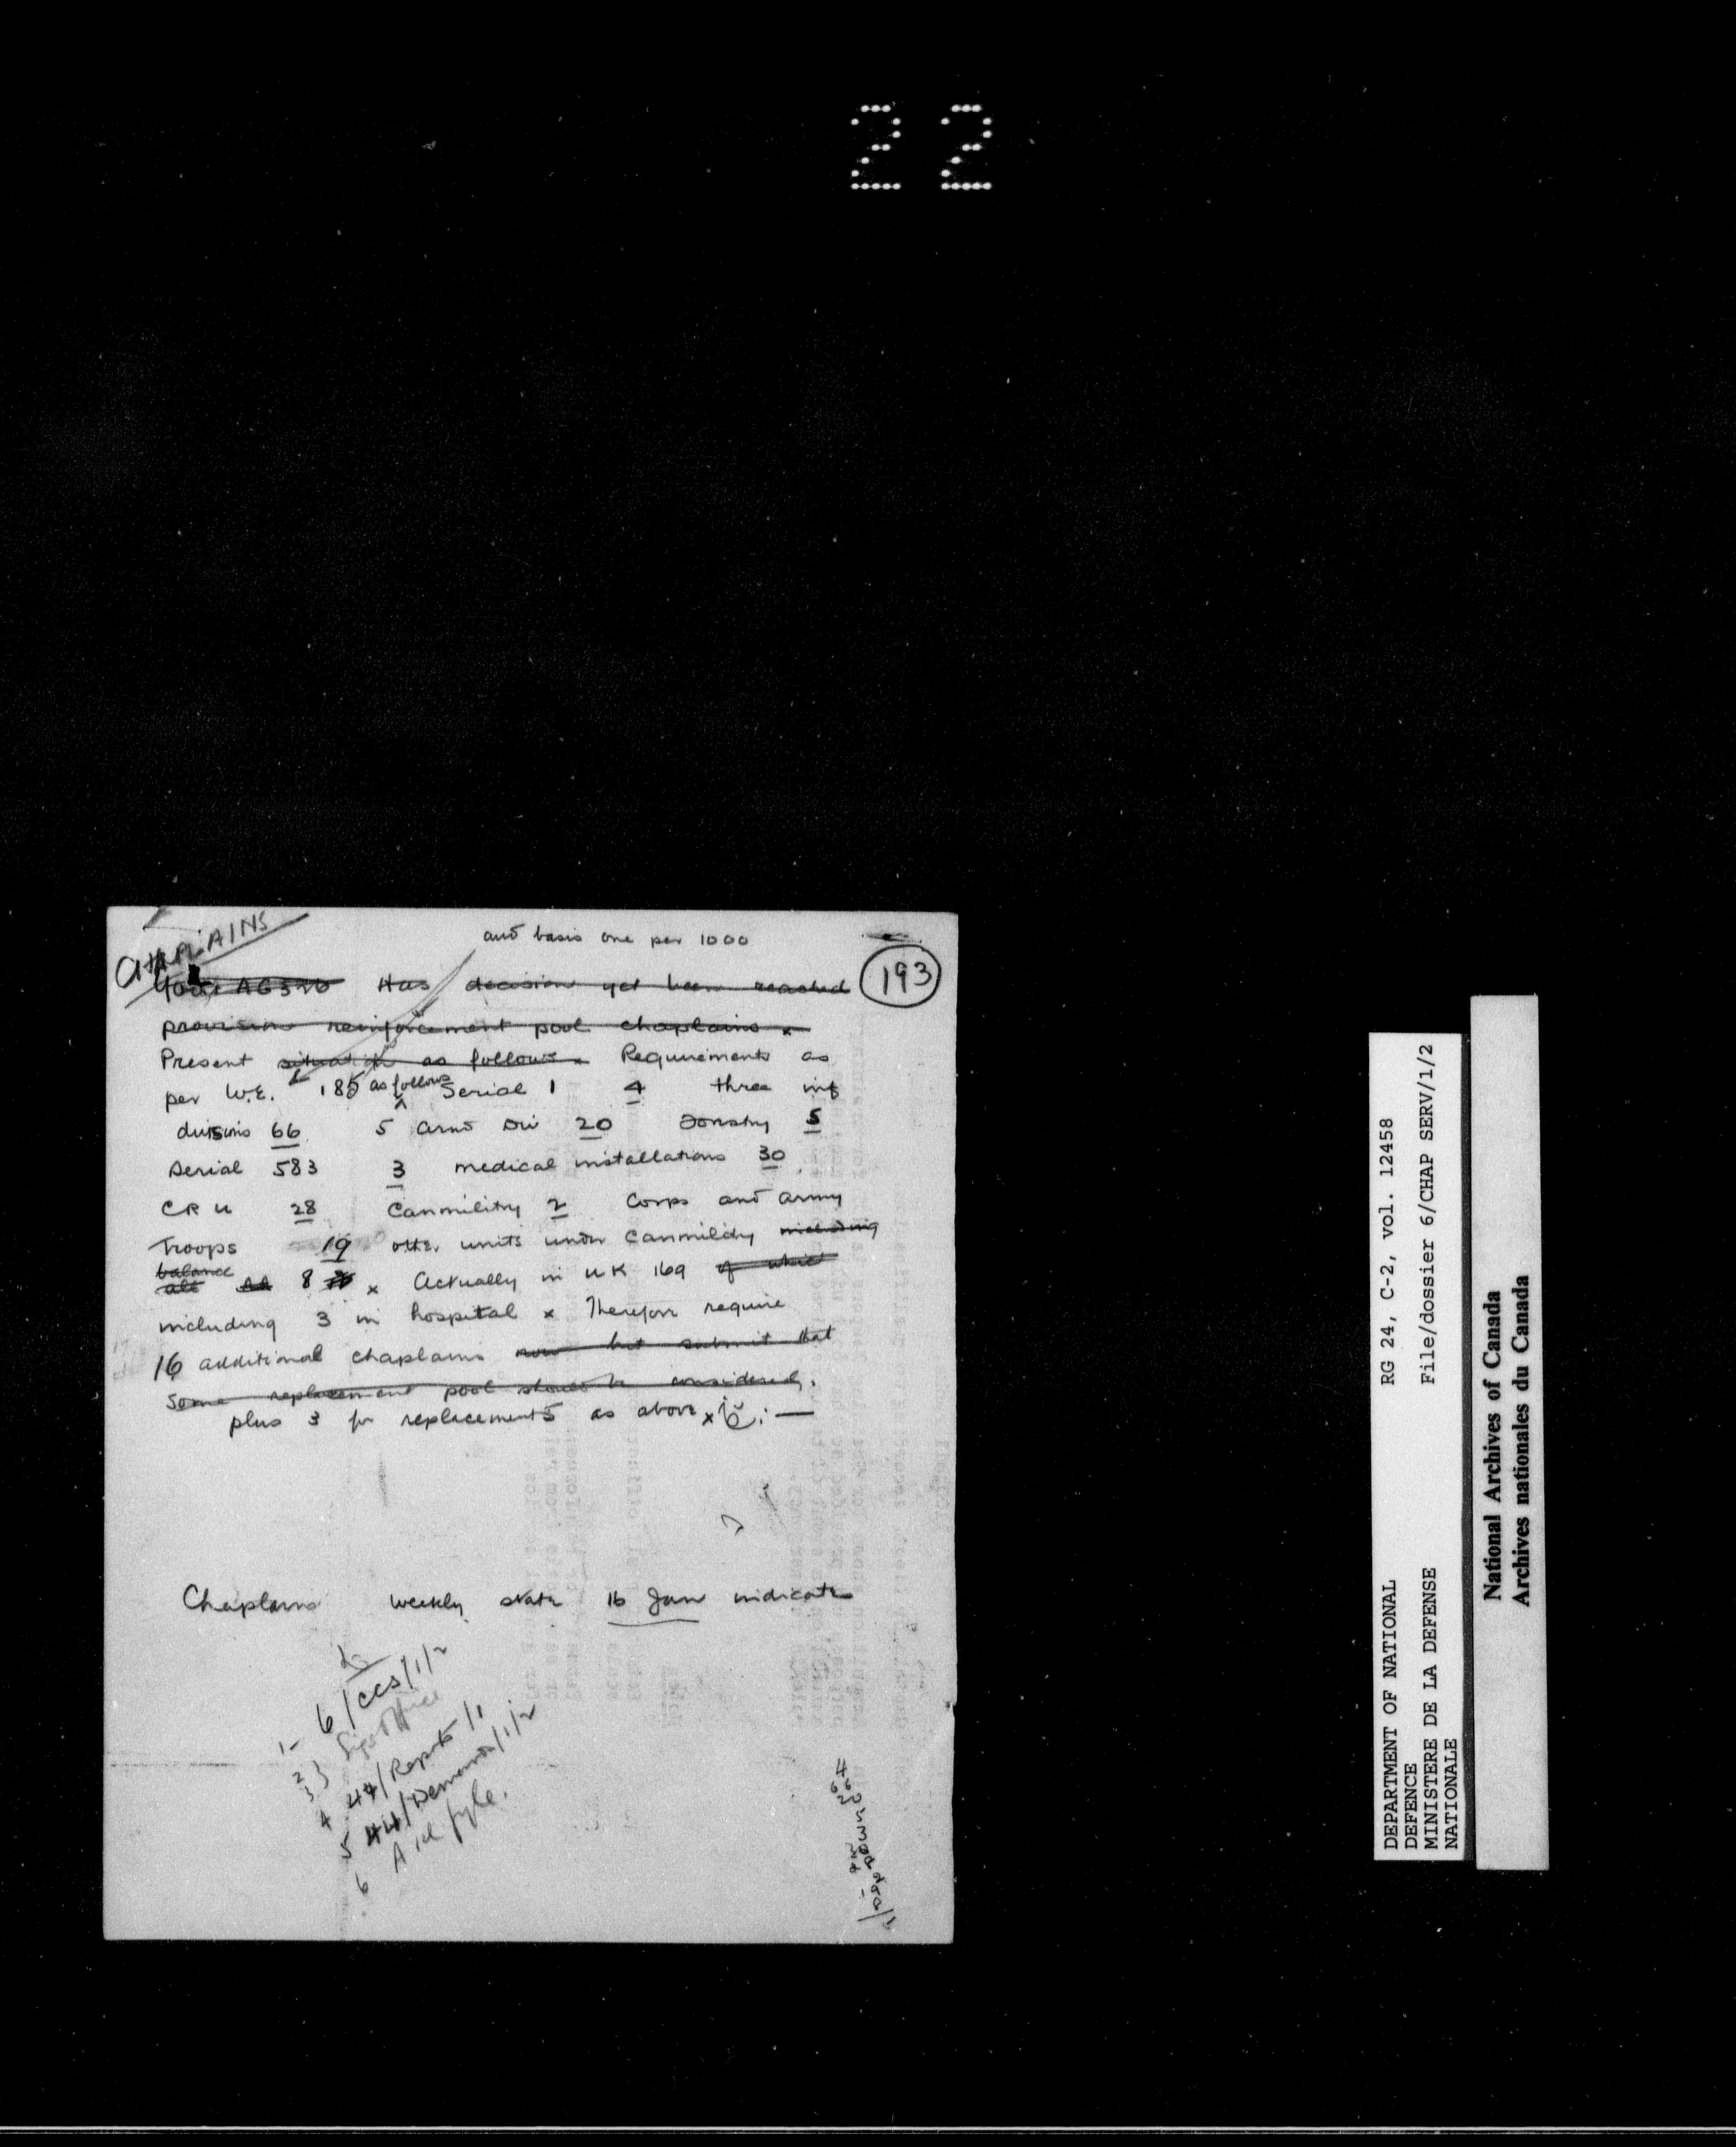 22
CHAPLAINS
and basis one per 1000
193
Your AG 326 Has decision yet been reached
provision reinforcement pool chaplains x
Present situation as follows x Requirements as
per W.E. 185 as follows Serial 1 4 three inf
divisions 66 5 Armd Div 20 Forestry 5
Serial 583 3 medical installations 30
CRU 28 Canmilitry 2 Corps and Army
Troops 19 other units under Canmilitry including
balance
all 8 x Actually in UK 169 of which
including 3 in hospital x Therefore require
16 additional chaplains now but submit that
some replacement pool should be considered.
plus 3 for replacements as above x
Chaplains weekly state 16 Jan indicate
1- 6/CCS/1/2
2
3 } Sigs Office
4 44/Reports/1
5 44/Demands/1/2
6 A id fyle.
4
66
20
RG 24, C-2, vol. 12458
File/dossier 6/CHAP SERV/1/2
DEPARTMENT OF NATIONAL
DEFENCE
MINISTERE DE LA DEFENSE
NATIONALE
National Archives of Canada
Archives nationales du Canada